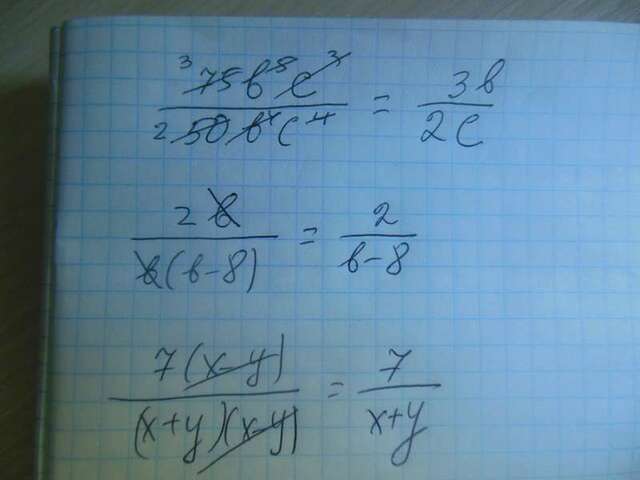 ³ 75b⁵c³ / ² 50b⁴c⁴ = 3b / 2c
2b / b(b-8) = 2 / b-8
7(x-y) / (x+y)(x-y) = 7 / x+y